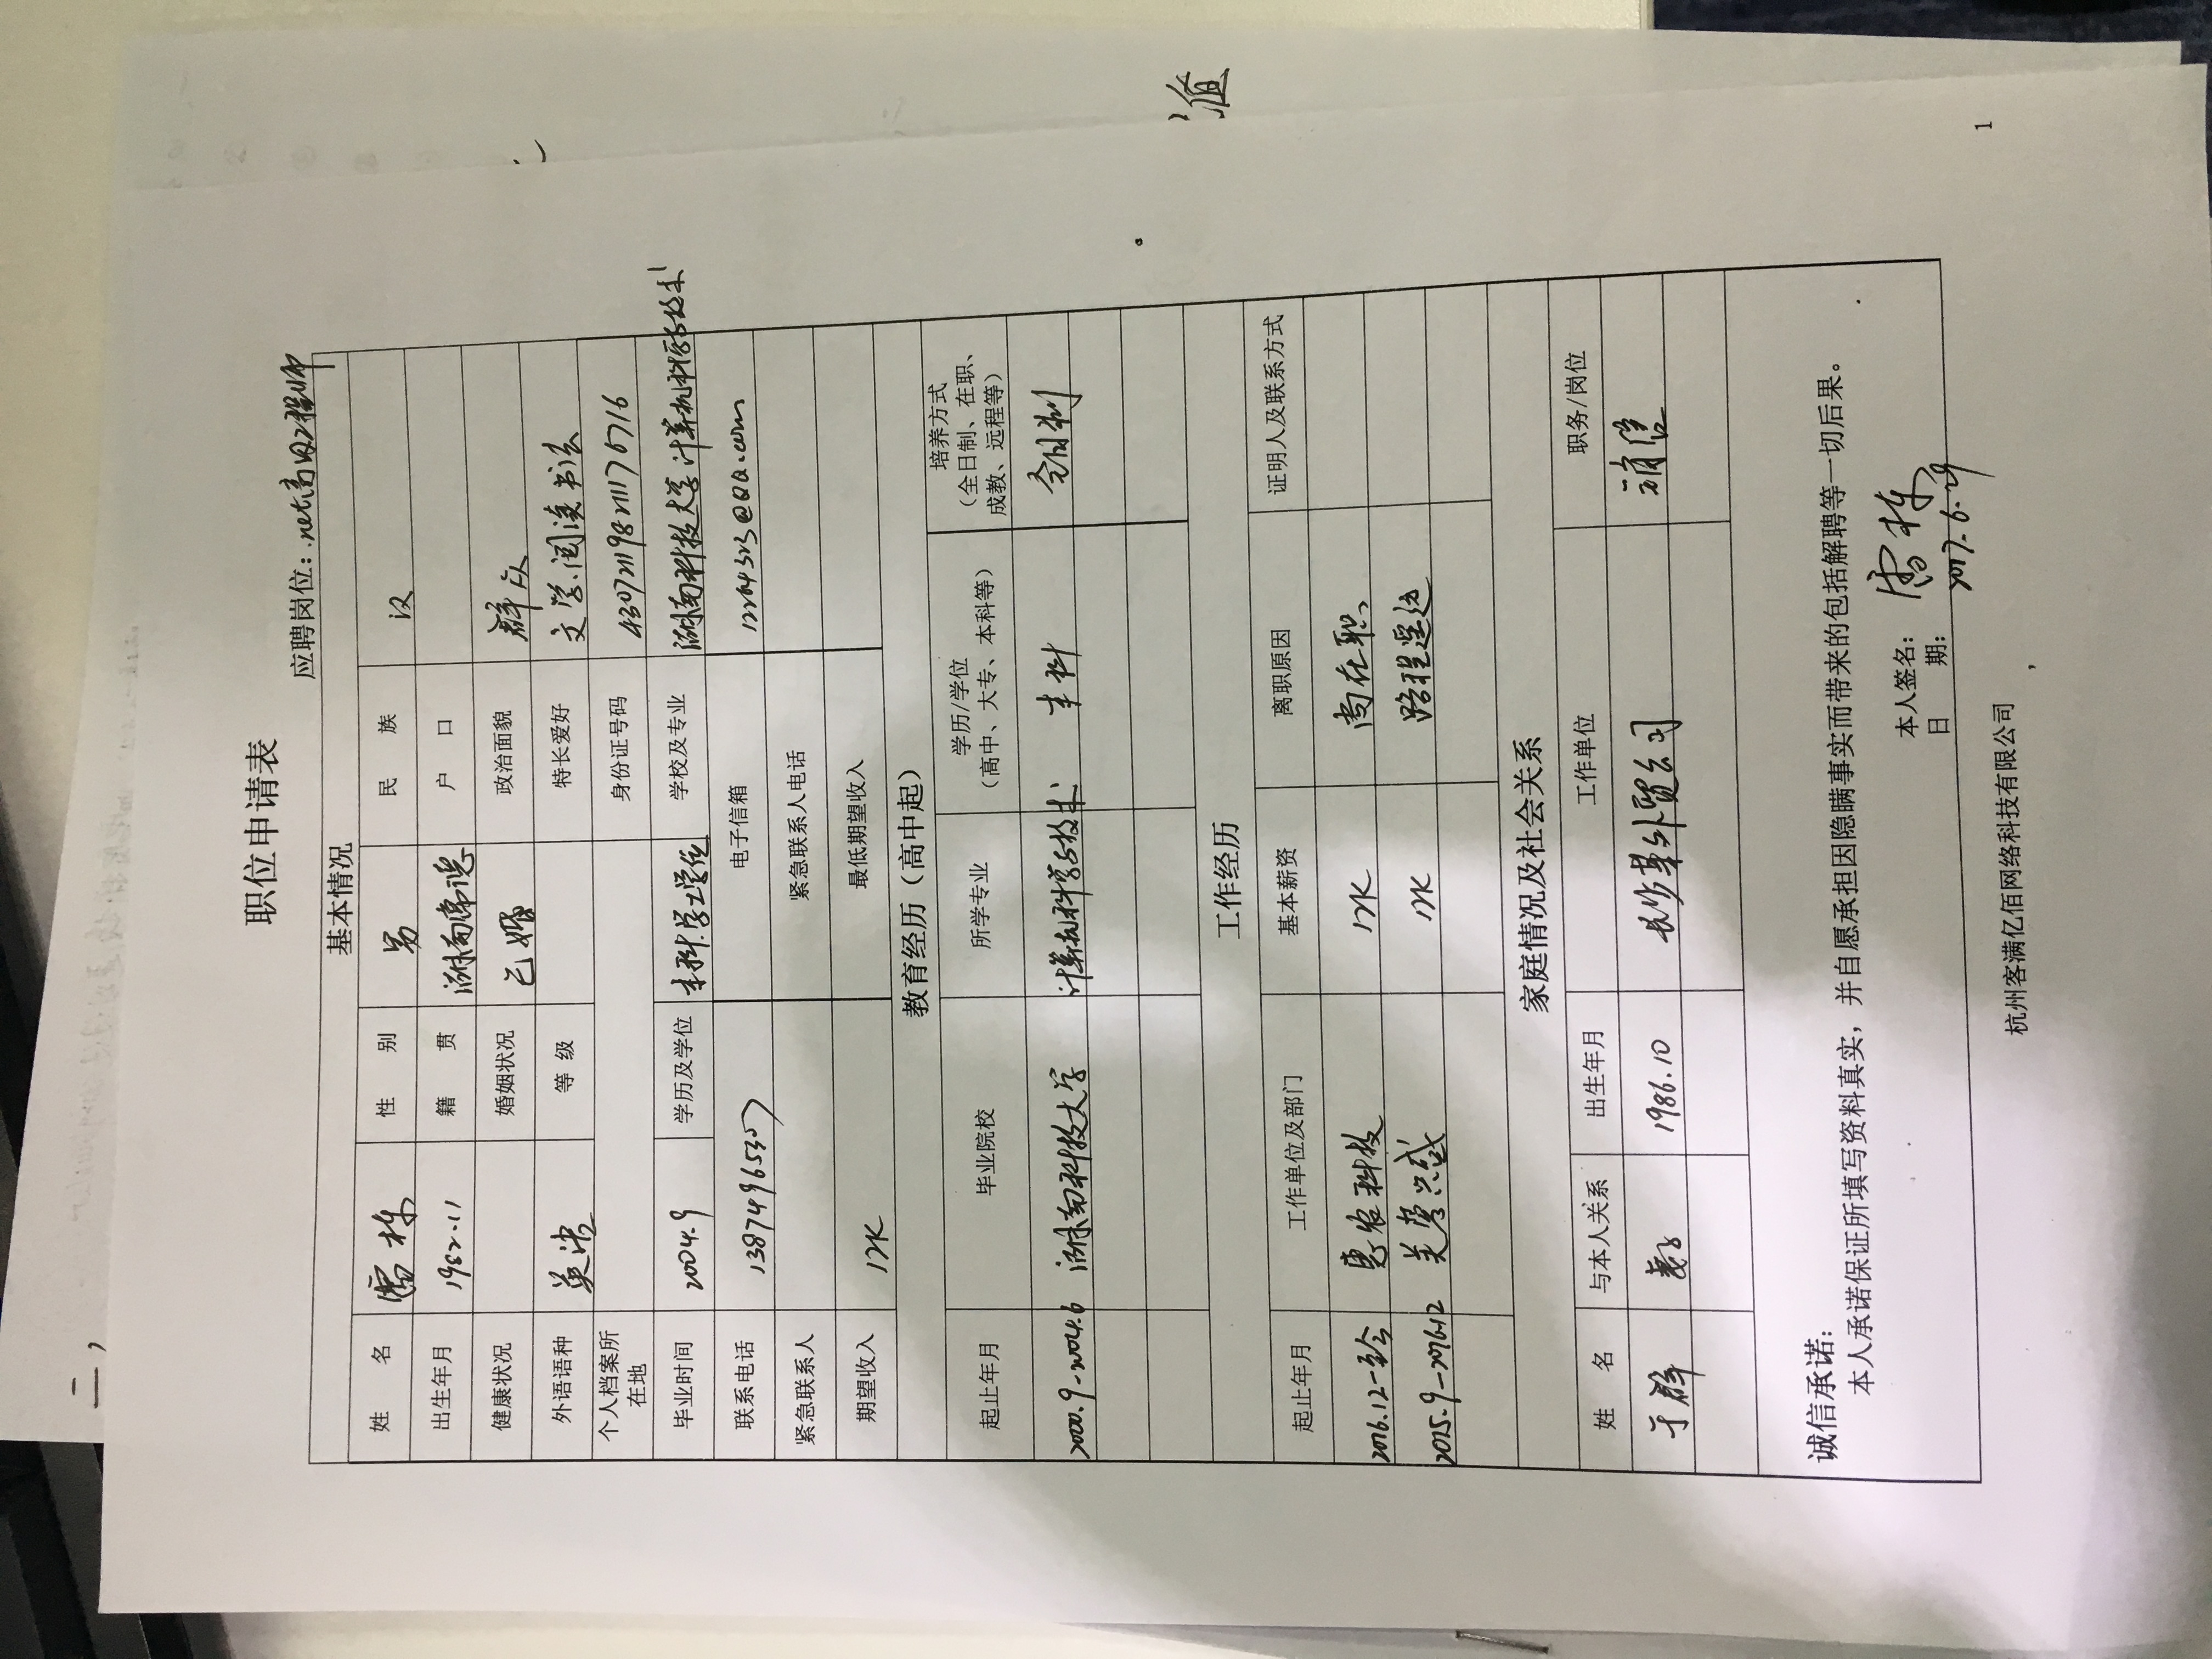 二，
职位申请表
应聘岗位：.net高级工程师
基本情况
姓 名 雷栋 性 别 男 民 族 汉
出生年月 1982.11 籍 贯 湖南常德 户 口
健康状况 婚姻状况 已婚 政治面貌 群众
外语语种 英语 等 级 特长爱好 文学.阅读书法
个人档案所在地 身份证号码
毕业时间 2004.9 学历及学位 本科.学士学位 学校及专业 湖南科技大学 计算机科学与技术
联系电话 13874965307 电子信箱 12264323@QQ.com
紧急联系人 紧急联系人电话
期望收入 12K 最低期望收入
教育经历（高中起）
起止年月 毕业院校 所学专业 学历/学位（高中、大专、本科等） 培养方式（全日制、在职、成教、远程等）
2000.9-2004.6 湖南科技大学 计算机科学与技术 本科 全日制
工作经历
起止年月 工作单位及部门 基本薪资 离职原因 证明人及联系方式
2016.12-至今 惠农科技 12K 尚在职
2015.9-2016.12 芙蓉兴盛 12K 路程遥远
家庭情况及社会关系
姓 名 与本人关系 出生年月 工作单位 职务/岗位
于群 妻子 1986.10 长沙某外贸公司 销售
诚信承诺：
本人承诺保证所填写资料真实，并自愿承担因隐瞒事实而带来的包括解聘等一切后果。
本人签名： 雷栋
日 期： 2017.6.29
杭州客满亿佰网络科技有限公司
1